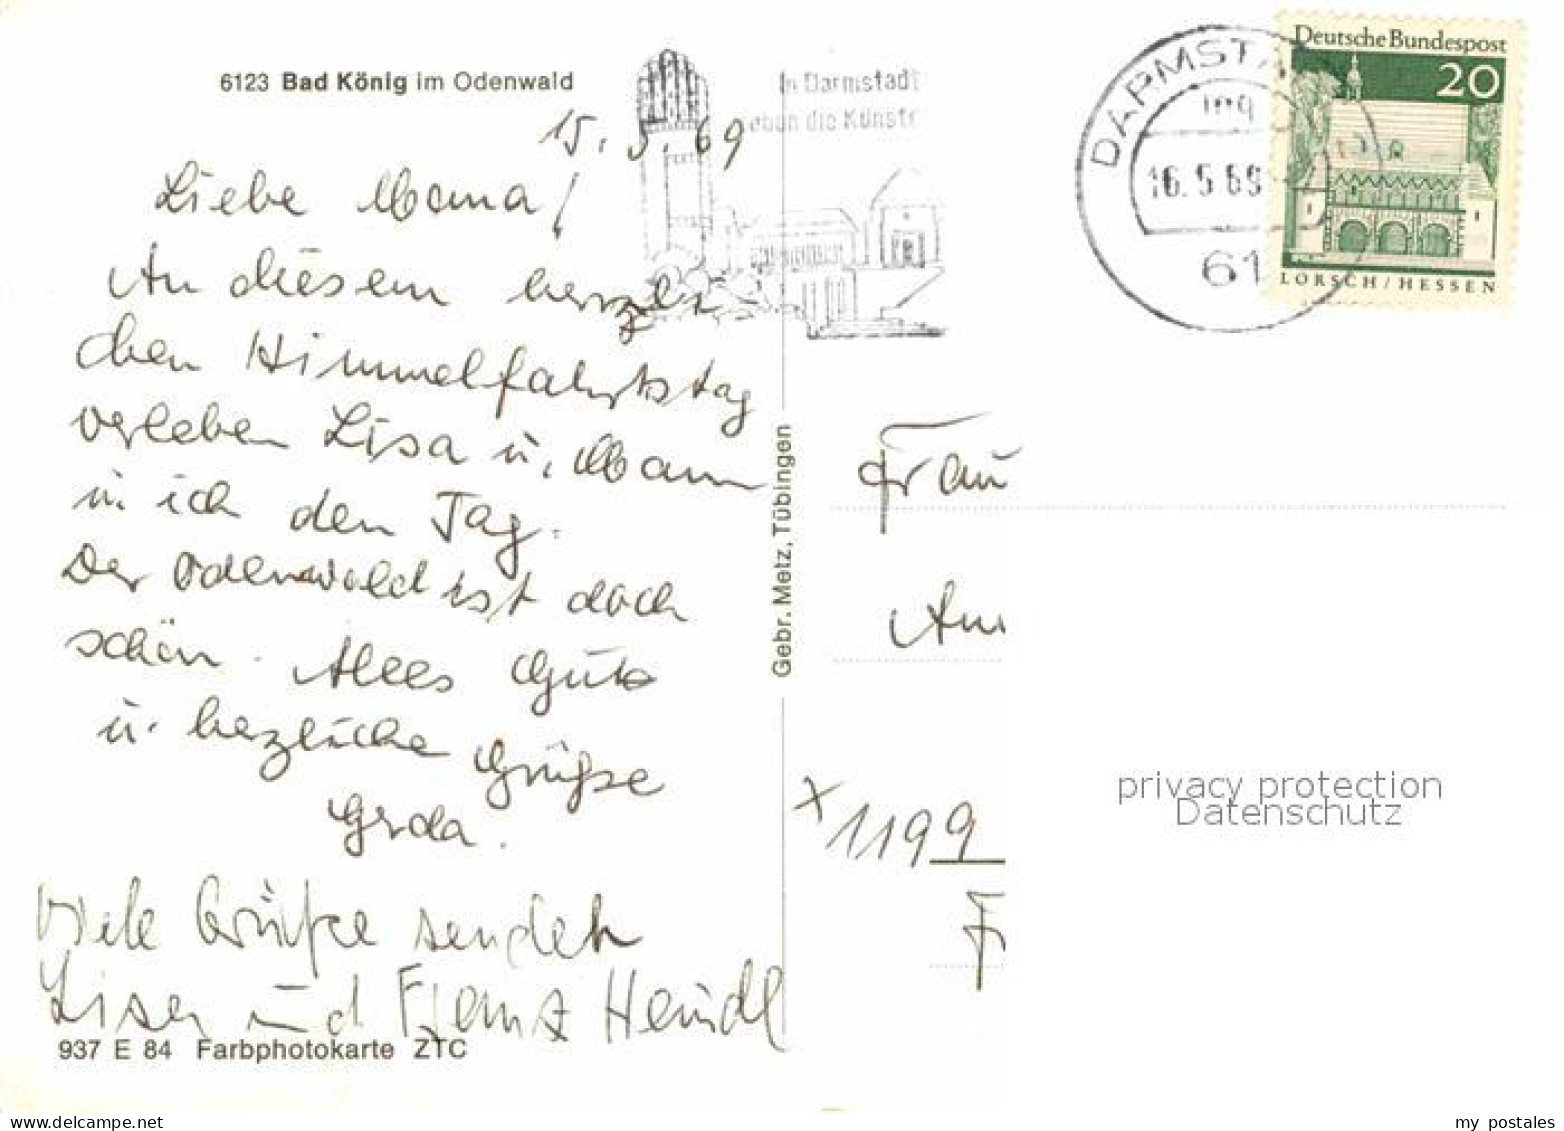 6123 Bad König im Odenwald
15. 5. 69
Liebe Mama!
An diesem herzli
chen Himmelfahrtstag
verleben Lisa u. Mann
u. ich den Tag.
Der Odenwald ist doch
schön. Alles Gute
u. herzliche Grüße
Gerda.
Viele Grüße senden
Lisa und Franz Heindl
937 E 84 Farbphotokarte ZTC
Gebr. Metz, Tübingen
In Darmstadt
leben die Künste
DARMSTA
16.5.69
61
Deutsche Bundespost
20
LORSCH/HESSEN
Frau
x 1199
privacy protection
Datenschutz
my postales